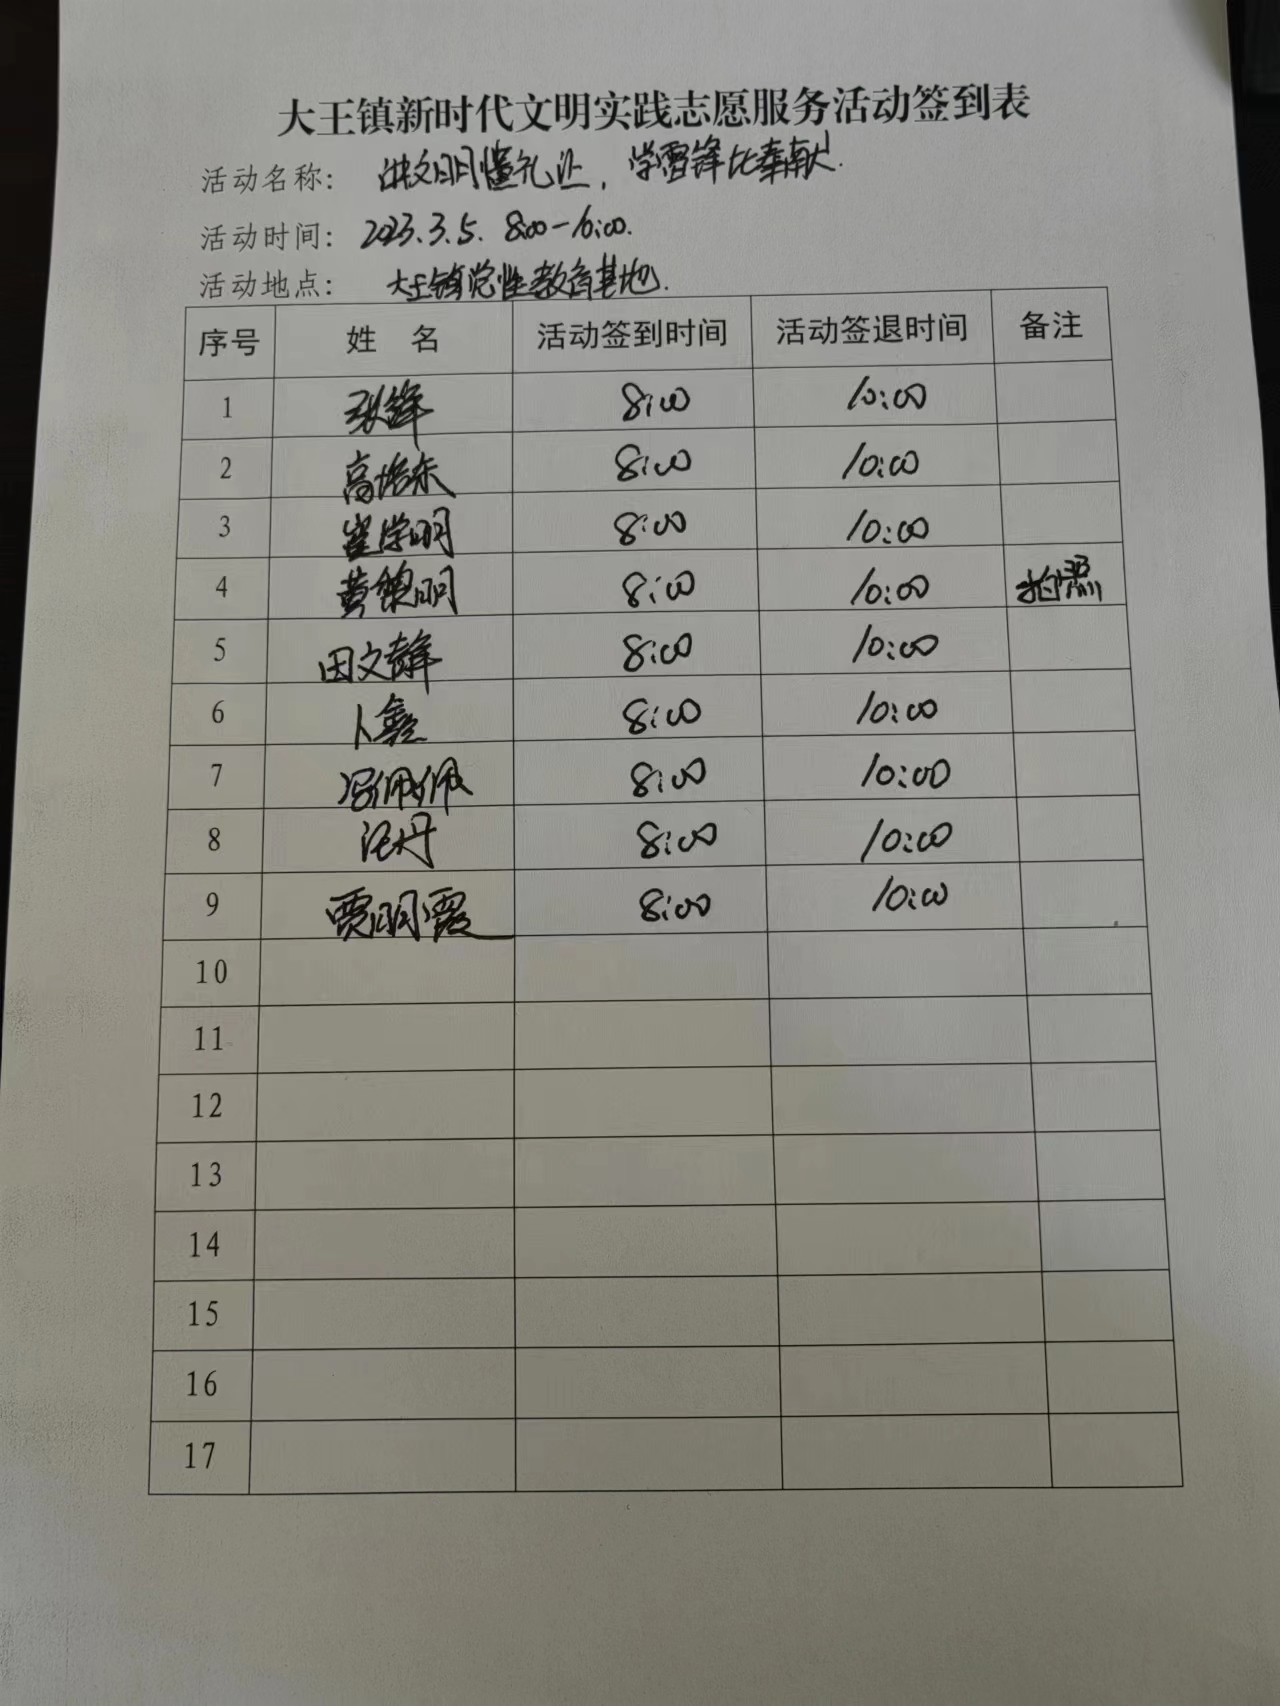 大王镇新时代文明实践志愿服务活动签到表
活动名称： 讲文明懂礼让，学雷锋比奉献.
活动时间： 2023.3.5. 8:00-10:00.
活动地点： 大王镇党性教育基地.
序号 姓 名 活动签到时间 活动签退时间 备注
1 张锋 8:00 10:00
2 高培东 8:00 10:00
3 崔学明 8:00 10:00
4 黄黎明 8:00 10:00 拍照
5 田文静 8:00 10:00
6 卜鑫 8:00 10:00
7 冯佩佩 8:00 10:00
8 汪丹 8:00 10:00
9 贾明霞 8:00 10:00
10
11
12
13
14
15
16
17